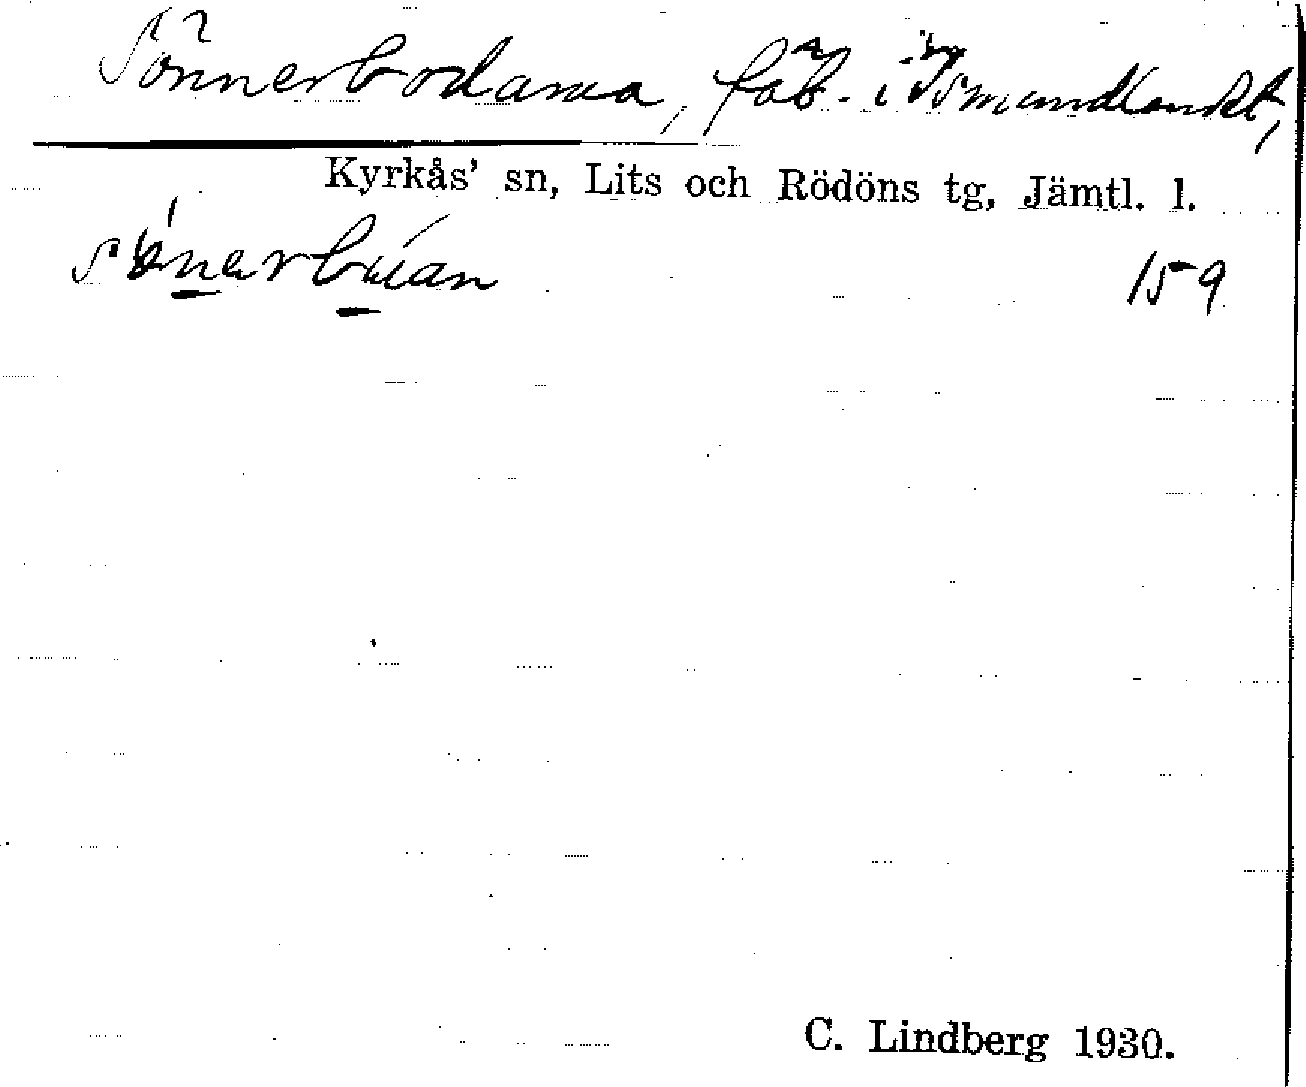 Sönnerbodarna, fäb. i Ösmundlandet,
Kyrkås' sn, Lits och Rödöns tg, Jämtl. l.
159
C. Lindberg 1930.